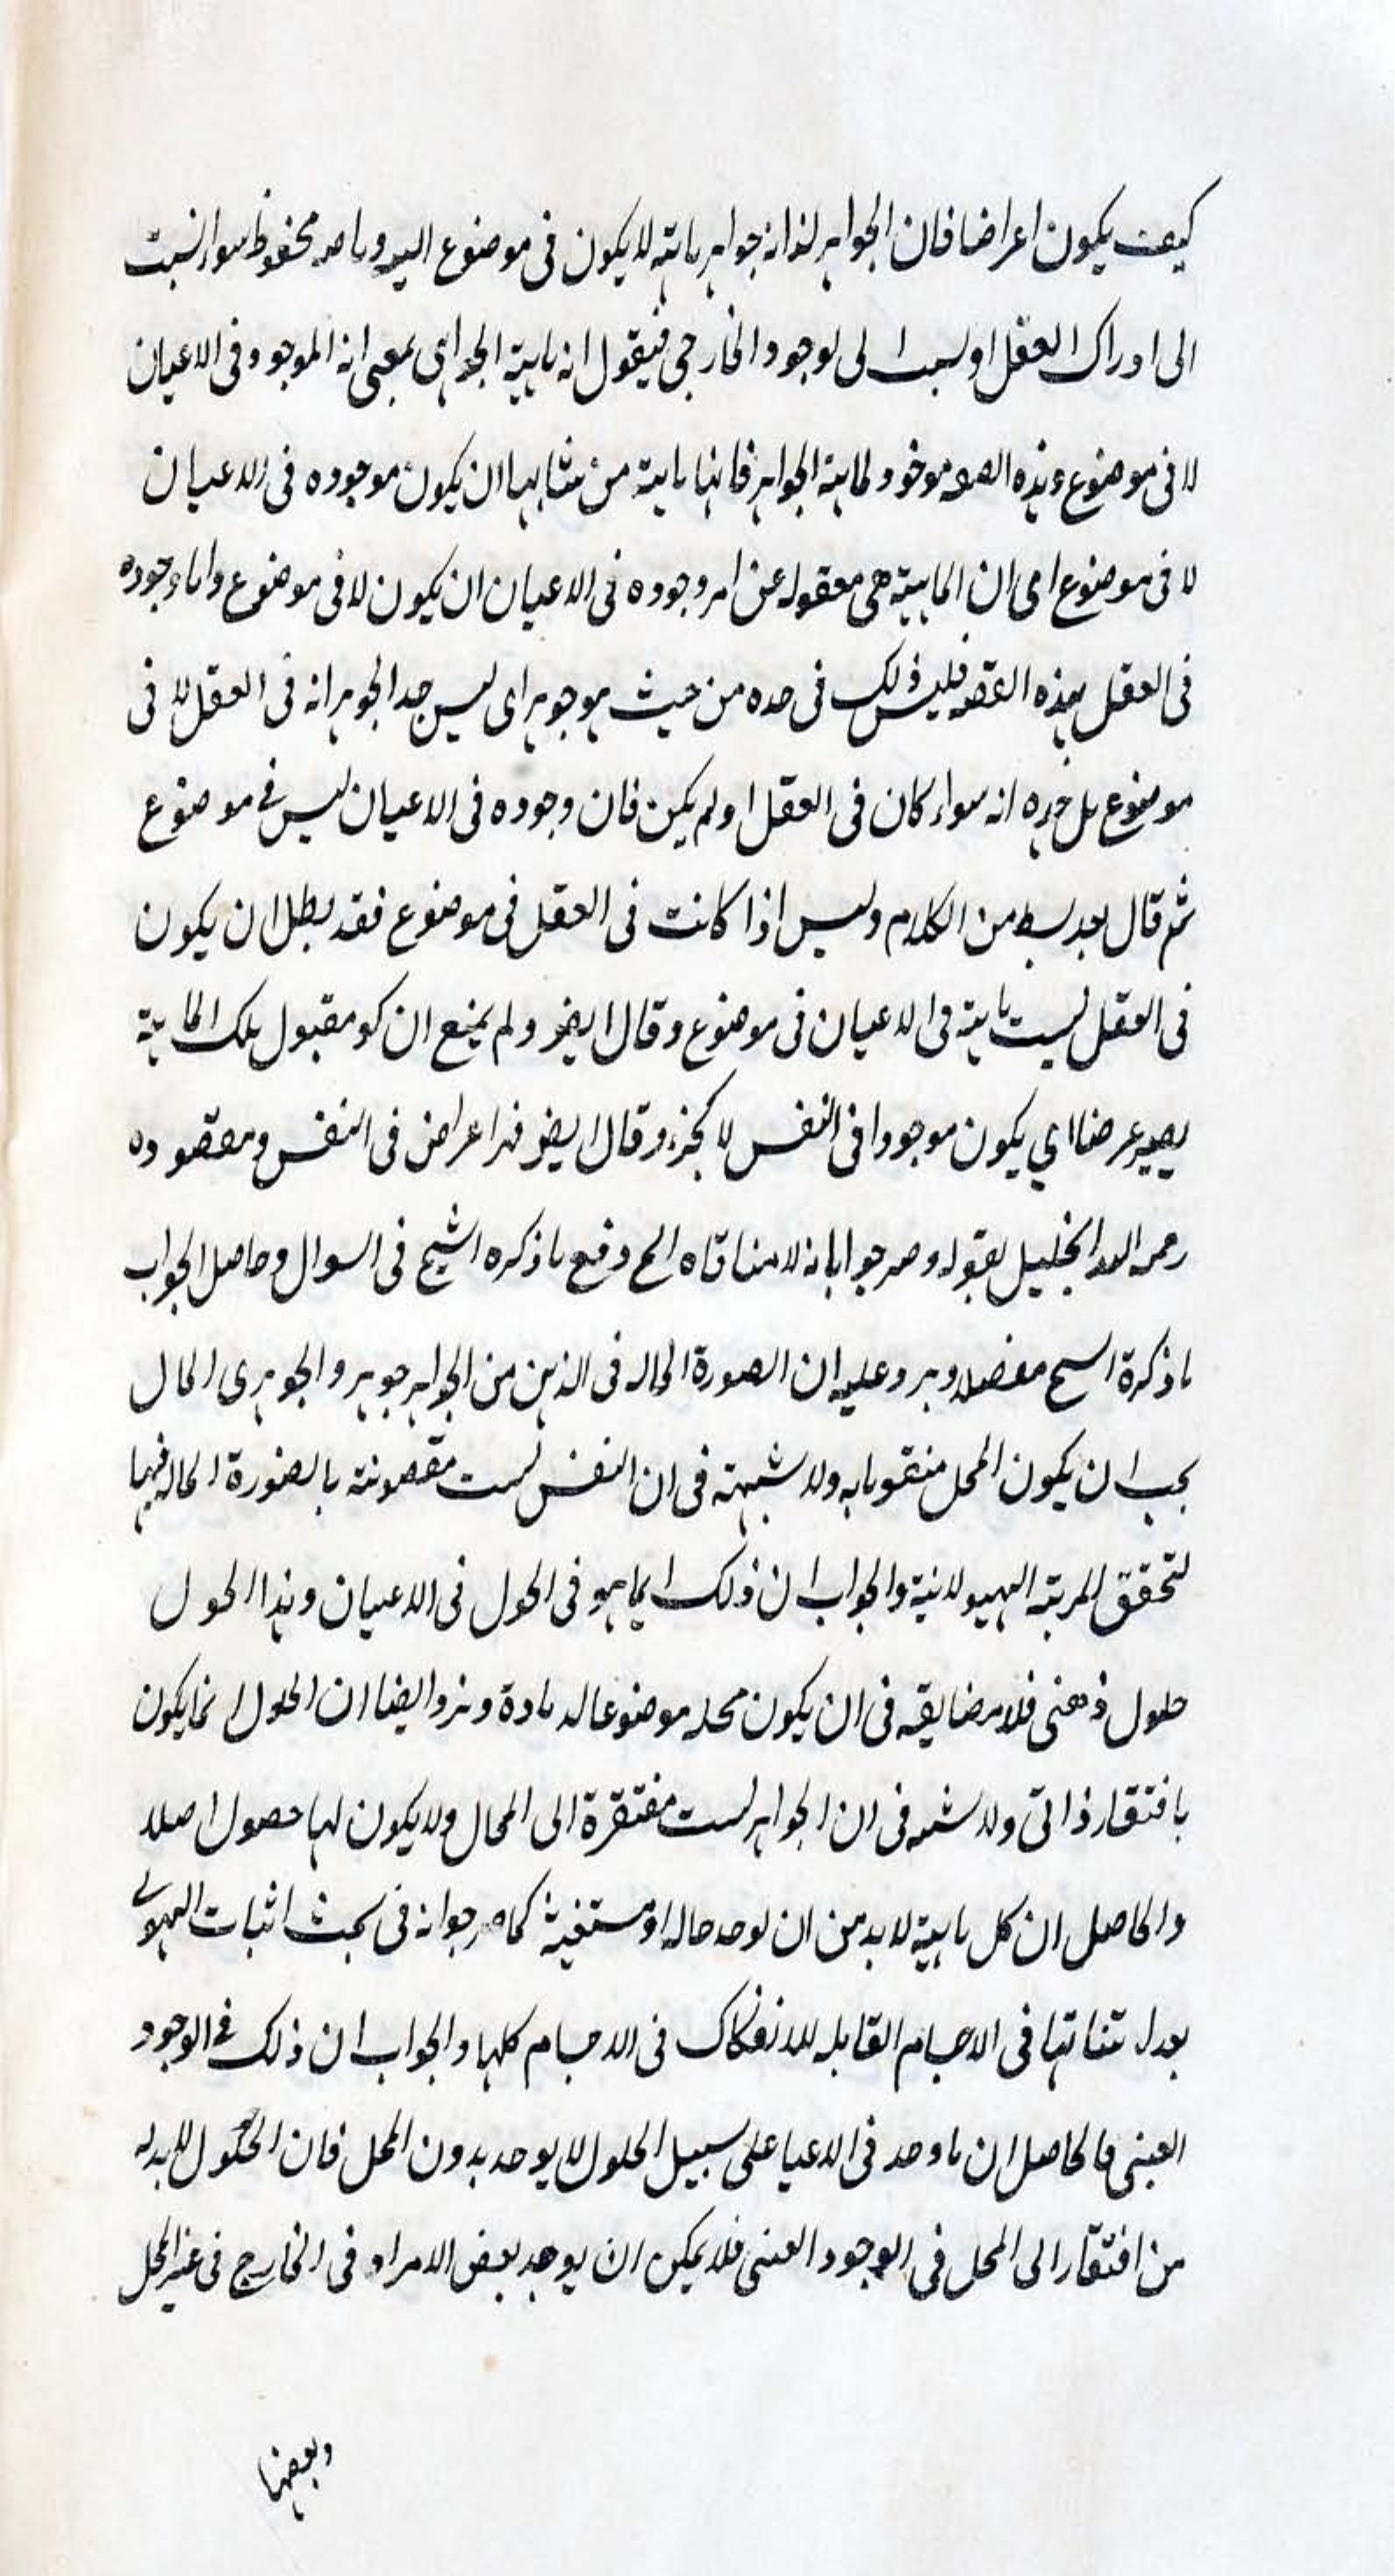 كيف يكون اعراضا فان الجواهر لذاته جواهر ماهيته لا يكون في موضوع البتة وماهيته محفوظ سواء نسبت
الى ادراك العقل او نسبت الى الوجود الخارجي فيقول ان ماهية الجواهر بمعنى انه الموجود في الاعيان
لا في موضوع وهذه الصفة موجود لماهية الجواهر فانها ماهية من شانها ان يكون موجوده في الاعيان
لا في موضوع اى ان الماهية هى معقولة عن امر وجوده في الاعيان ان يكون لا في موضوع واما وجوده
في العقل بهذه الصفة فليس ذلك في حده من حيث هو جوهر اى ليس حد الجوهر انه في العقل لا في
موضوع بل حده انه سواء كان في العقل او لم يكن فان وجوده في الاعيان ليس في موضوع
ثم قال بعد بسط من الكلام وليس اذا كانت في العقل في موضوع فقد بطل ان يكون
في العقل ليست ماهيته في الاعيان في موضوع وقال ايضا ولم يمنع ان كو مقبول تلك الماهية
يصير عرضا اي يكون موجودا في النفس لا كجزء وقال ايضا فهذا اعراض في النفس ومقصوده
رحمه الله الجليل بقوله وصرحوا بانه لا منافاة الخ دفع ما ذكره الشيخ في السوال وحاصل الجواب
ما ذكرة الشيخ مفصله ويرد عليه ان الصورة الحاله في الذهن من الجواهر جوهر والجوهرى الحال
يجب ان يكون المحل متقوما به ولا شبهته في ان النفس ليست متقومة بالصورة الحاله فيها
لتحقق المرتبة الهيولانية والجواب ان ذلك انما هو في الحول في الاعيان وهذا الحول
حلول ذهنى فلا مضايقه في ان يكون محله موضوعا له مادة ويرد ايضا ان الحلول انما يكون
بافتقار ذاتى ولا شبهه في ان الجواهر ليست مفتقرة الى المحال ولا يكون لها حصول اصلا
والحاصل ان كل ماهية لا بد من ان توجد حاله او مستغنية كما صرحوا به في بحث اثبات الهيولى
بعد اثباتها في الاجسام القابله للانفكاك في الاجسام كلها والجواب ان ذلك في الوجود
العينى فالحاصل ان ما وجد في الاعيا على سبيل الحلول لا يوجد بدون المحل فان الحلول لا بد له
من افتقار الى المحل في الوجود العينى فلا يمكن ان يوجد بعض الافراد في الخارج في غير المحل
وبعضها